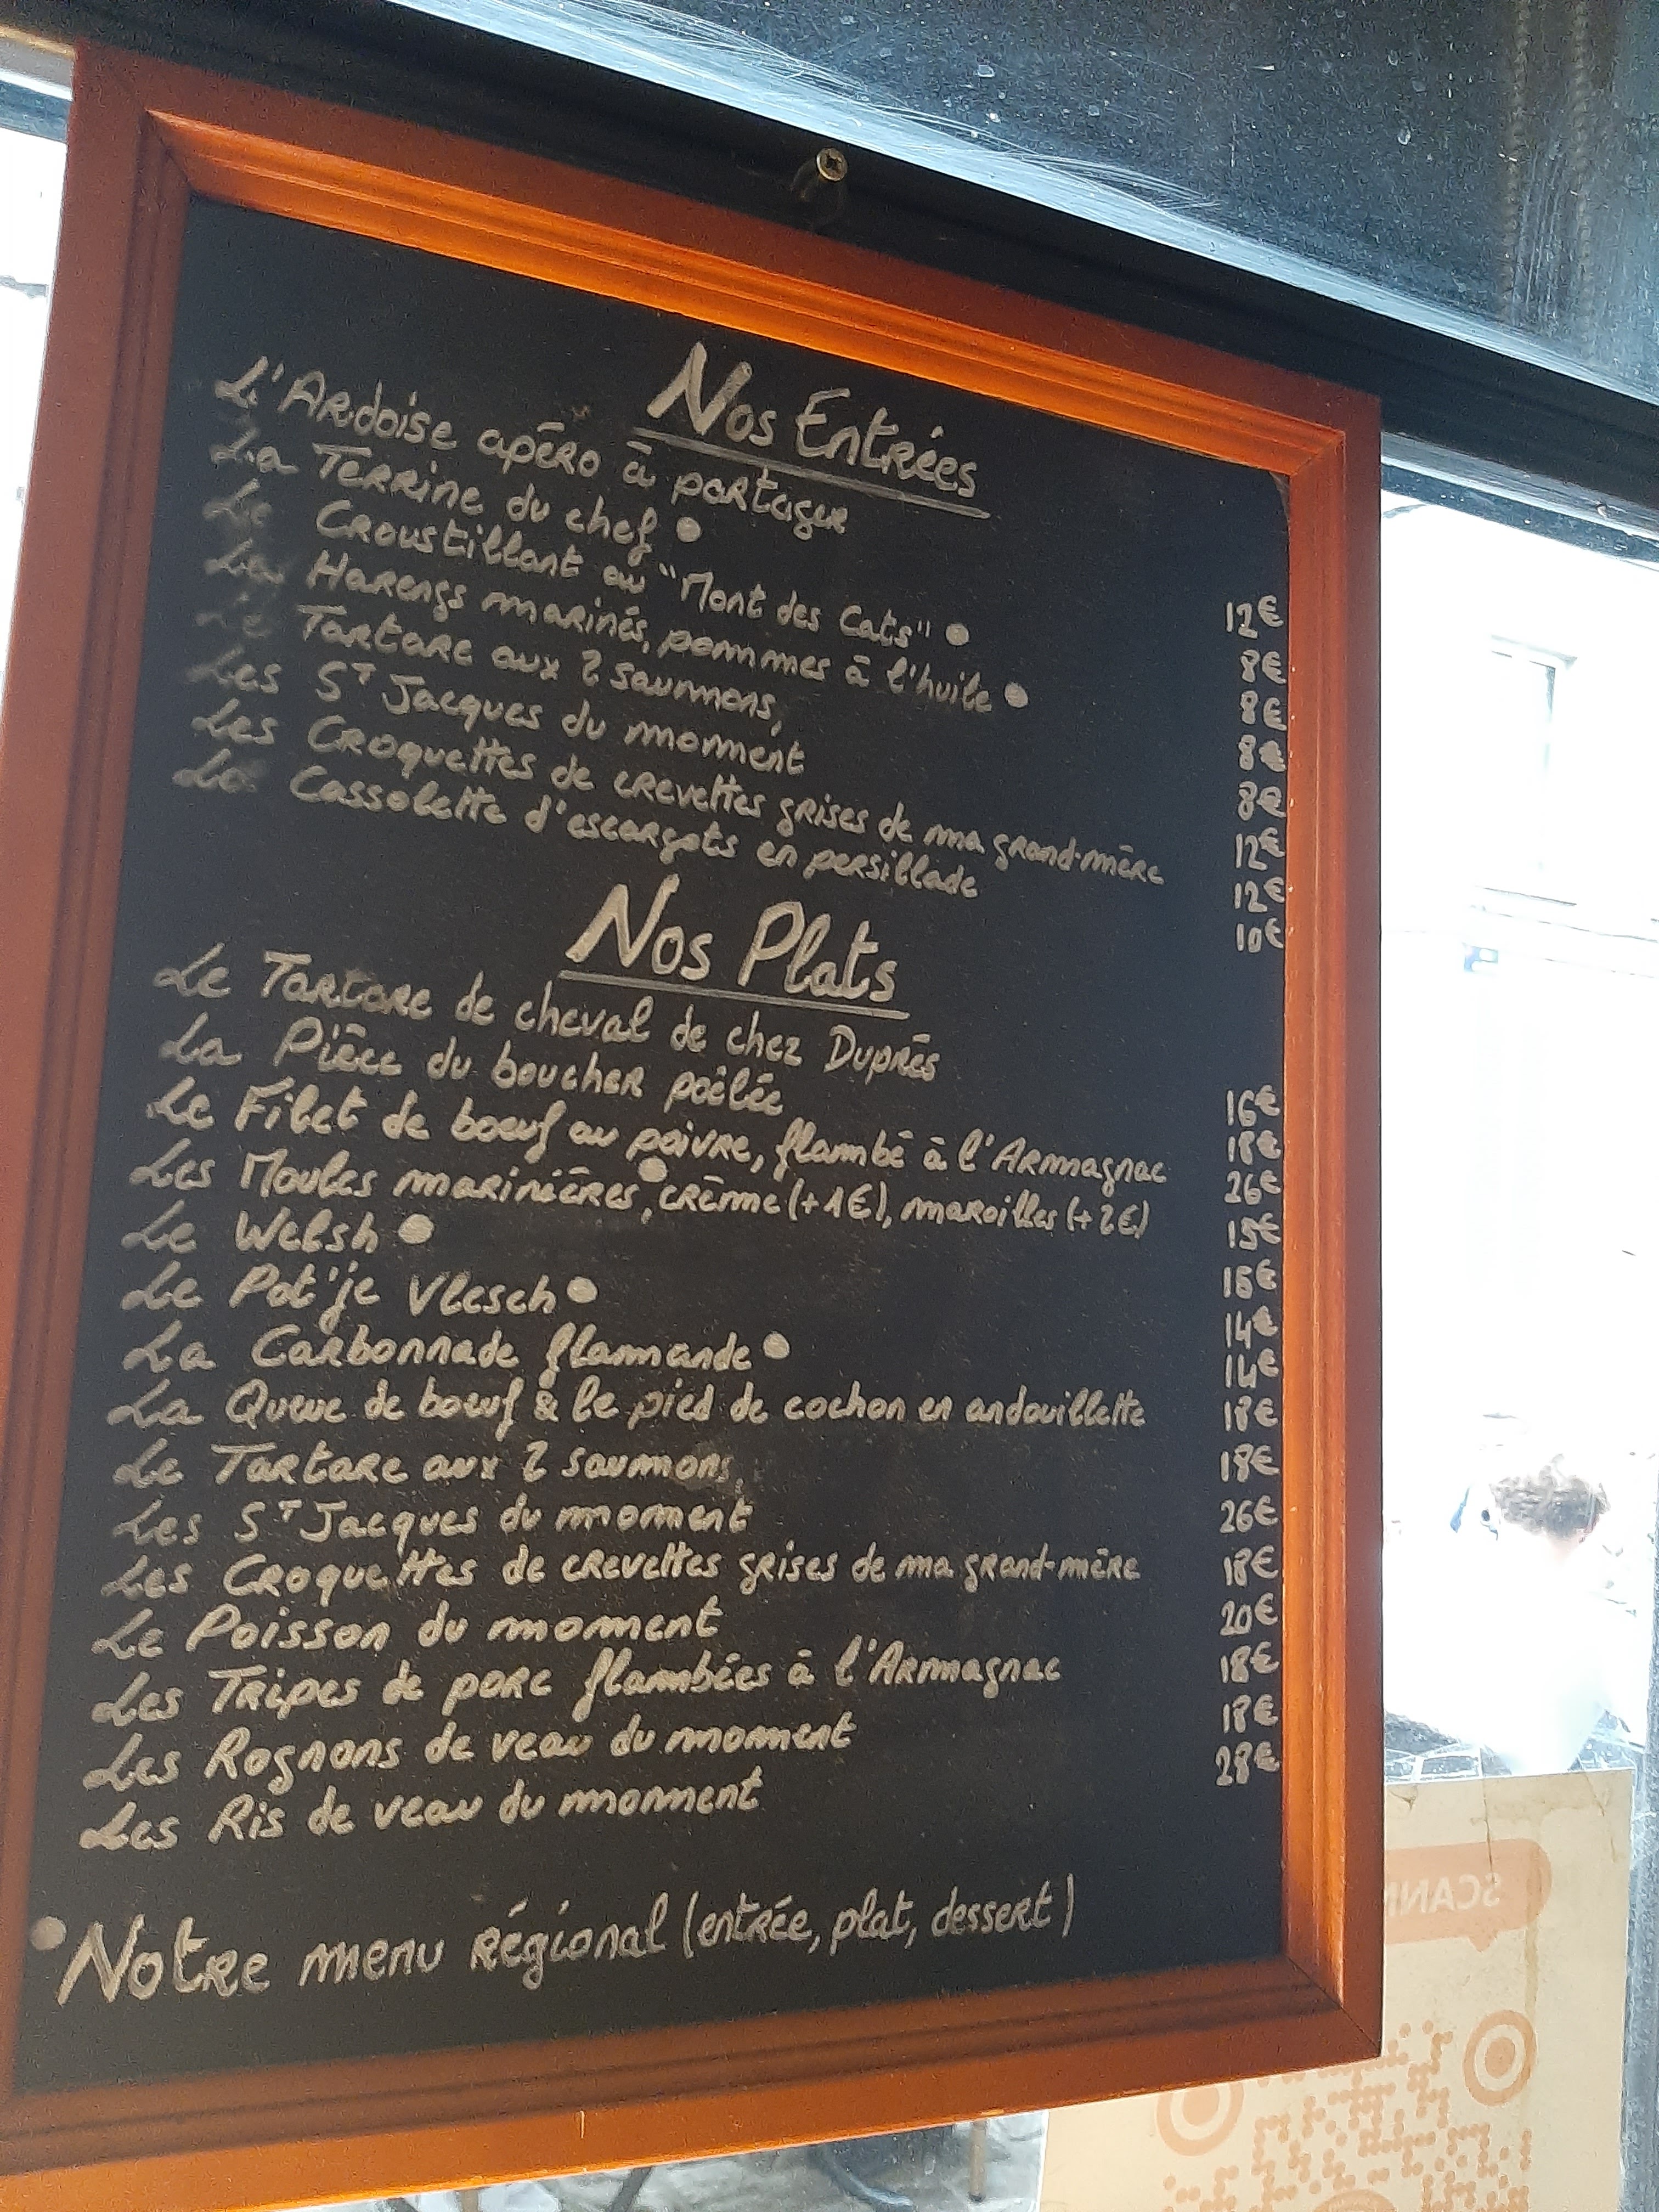 Nos Entrées
L'Ardoise apéro à partager 12€
La Terrine du chef ● 8€
Le Croustillant au "Mont des Cats" ● 8€
Les Harengs marinés, pommes à l'huile ● 8€
Le Tartare aux 2 saumons, 8€
Les S^T Jacques du moment 12€
Les Croquettes de crevettes grises de ma grand-mère 12€
La Cassolette d'escargots en persillade 10€
Nos Plats
Le Tartare de cheval de chez Duprés 16€
La Pièce du boucher poêlée 18€
Le Filet de bœuf au poivre, flambé à l'Armagnac 26€
Les Moules marinières●, crème (+1€), maroilles (+2€) 15€
Le Welsh ● 15€
Le Pot'je Vlesch ● 14€
La Carbonnade flamande ● 14€
La Queue de bœuf & le pied de cochon en andouillette 18€
Le Tartare aux 2 saumons, 18€
Les S^T Jacques du moment 26€
Les Croquettes de crevettes grises de ma grand-mère 18€
Le Poisson du moment 20€
Les Tripes de porc flambées à l'Armagnac 18€
Les Rognons de veau du moment 18€
Les Ris de veau du moment 28€
● Notre menu régional (entrée, plat, dessert)